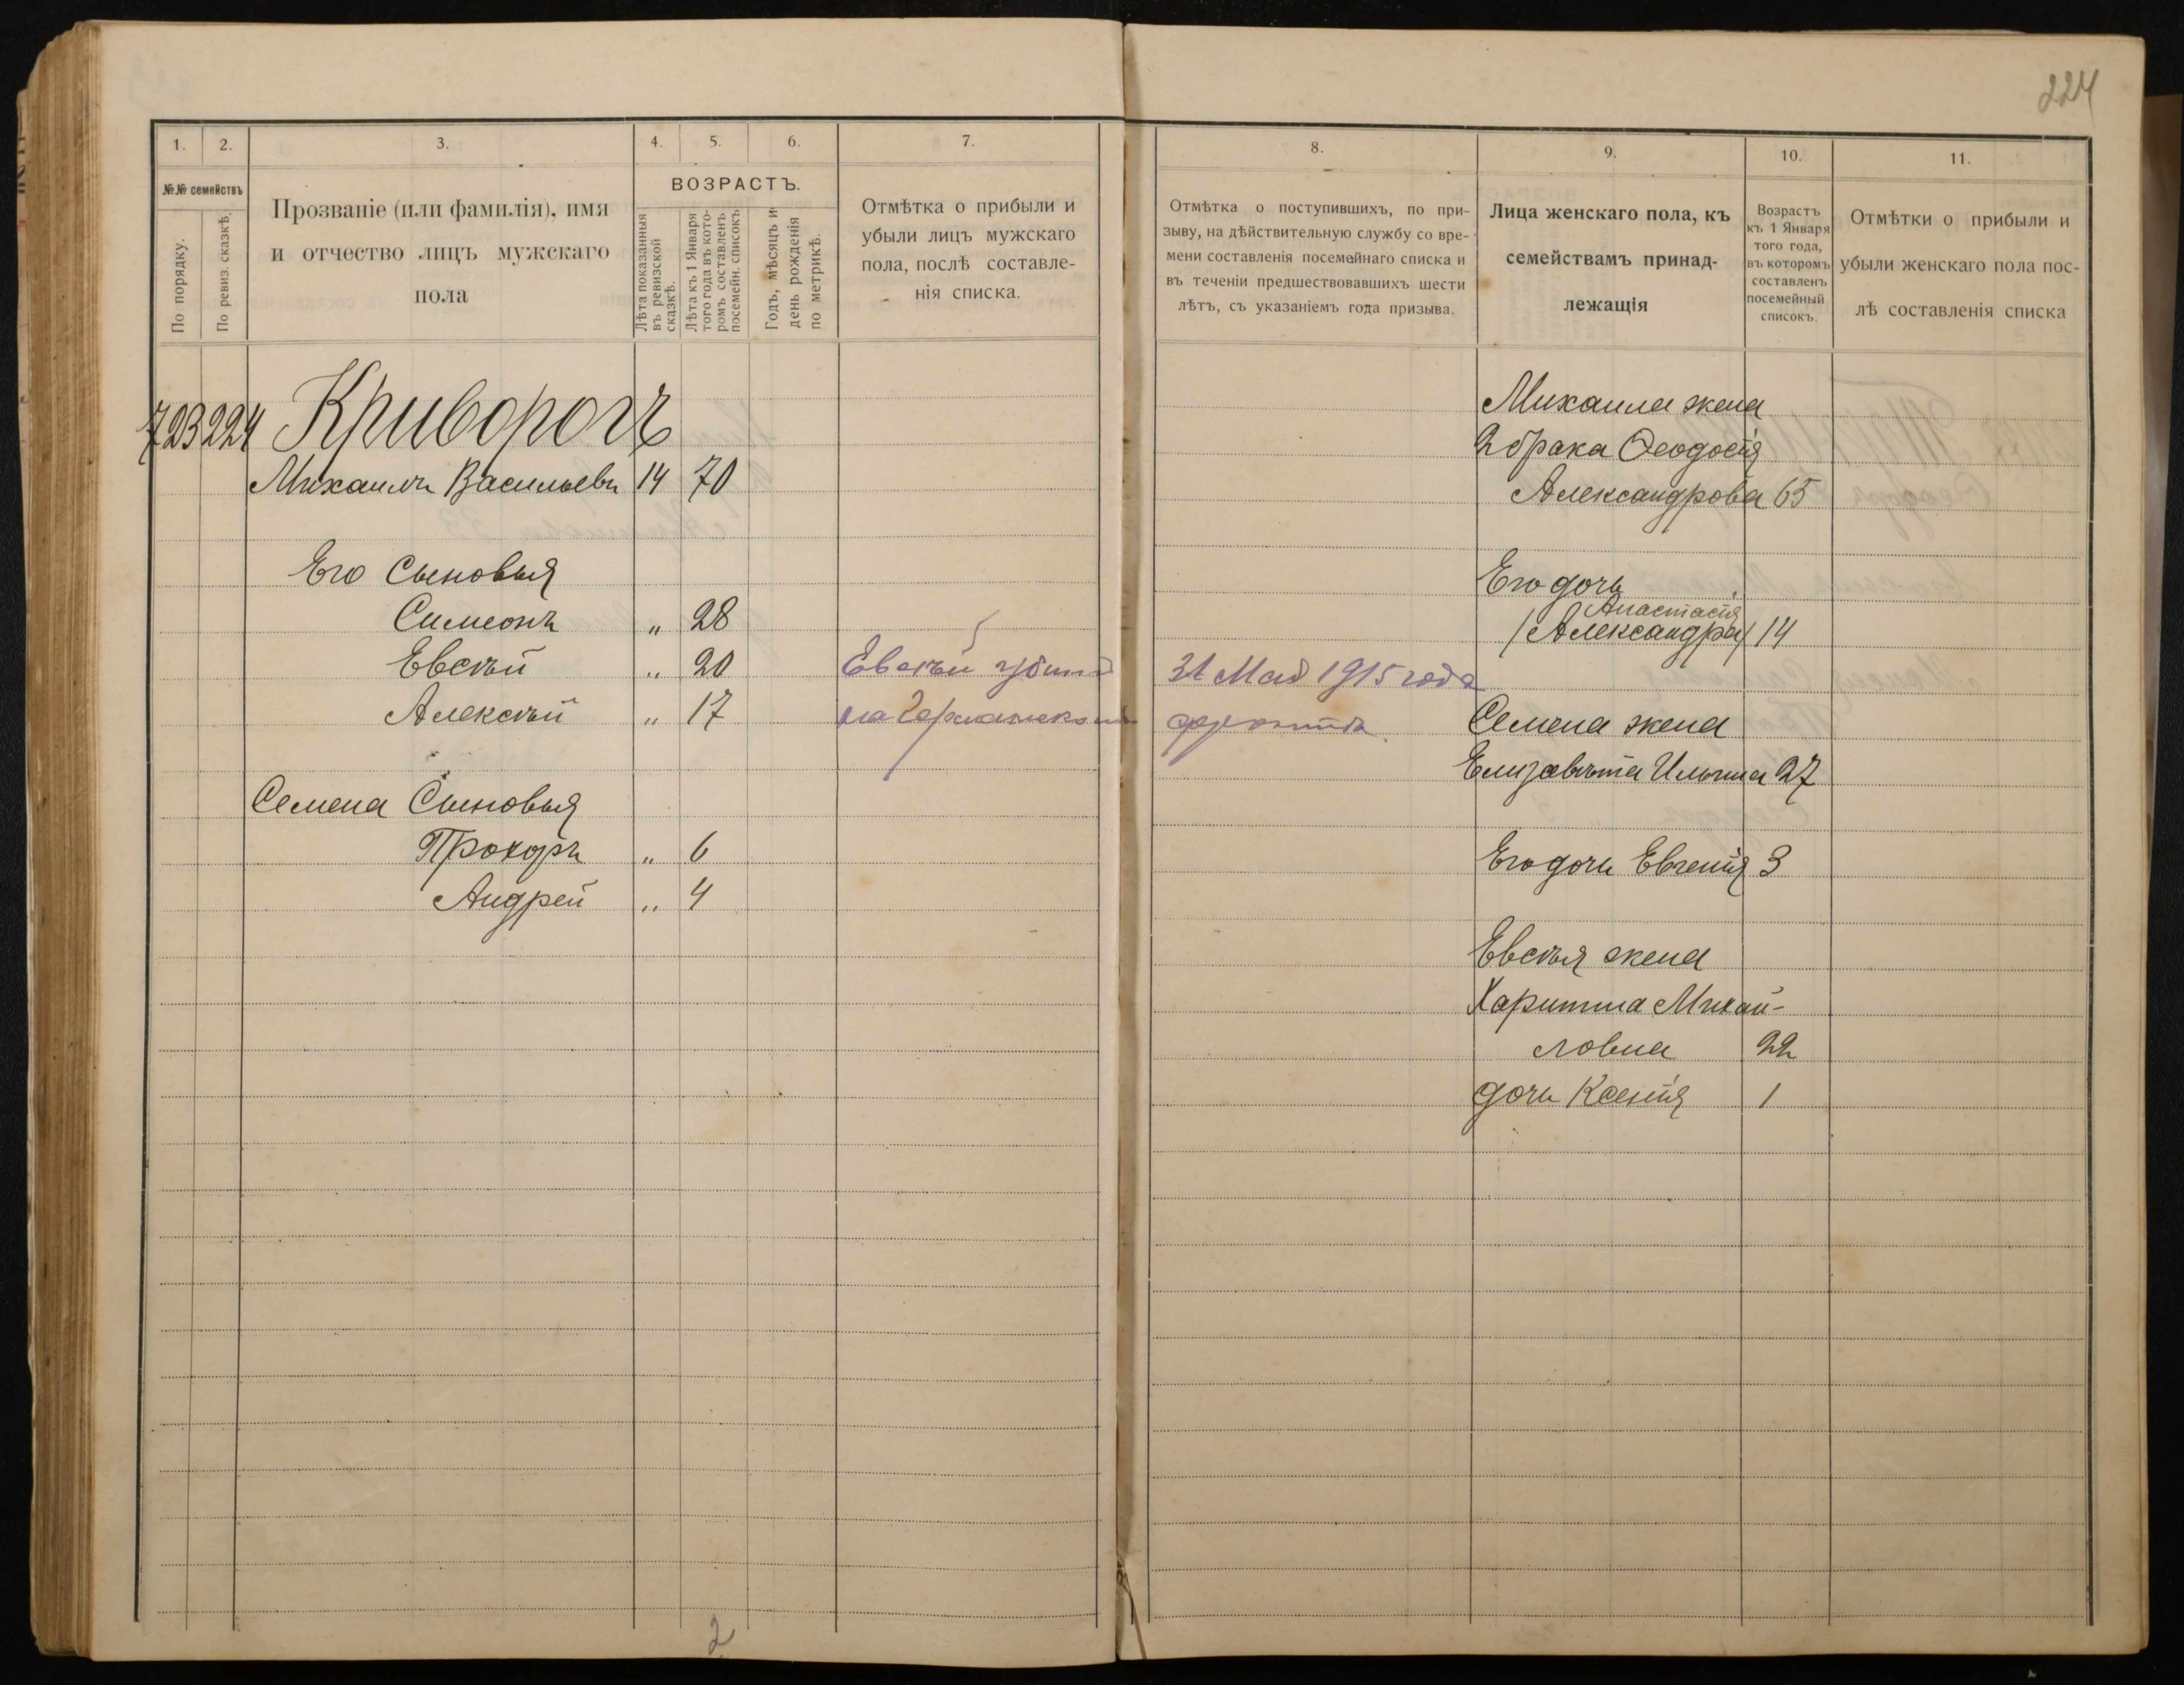 224
1. 2. 3. 4. 5. 6. 7.
№№ семействъ
По порядку.
По ревиз. сказкѣ.
Прозваніе (или фамилія), имя
и отчество лицъ мужскаго
пола
ВОЗРАСТЪ.
Лѣта показанныя
въ ревизской
сказкѣ.
Лѣта къ 1 Января
того года въ кото-
ромъ составленъ
посемейн. списокъ
Годъ, мѣсяцъ и
день рожденія
по метрикѣ.
Отмѣтка о прибыли и
убыли лицъ мужскаго
пола, послѣ составле-
нія списка.
723 224 Криворогъ
Михаилъ Васильевъ 14 70
Его Сыновья
Симеонъ " 28
Евсѣй " 20 Евсѣй убитъ
Алексѣй " 17 на Германскомъ
Семена Сыновья
Прохоръ " 6
Андрей " 4
2
8. 9. 10. 11.
Отмѣтка о поступившихъ, по при-
зыву, на дѣйствительную службу со вре-
мени составленія посемейнаго списка и
въ теченіи предшествовавшихъ шести
лѣтъ, съ указаніемъ года призыва.
Лица женскаго пола, къ
семействамъ принад-
лежащія
Возрастъ
къ 1 Января
того года,
въ которомъ
составленъ
посемейный
списокъ.
Отмѣтки о прибыли и
убыли женскаго пола пос-
лѣ составленія списка
Михаила жена
2 брака Ѳеодосія
Александрова 65
Его дочь
Анастасія
/Александра/ 14
31 Мая 1915 года
фронтѣ.
Семена жена
Елизавѣта Ильина 27
Его дочь Евгенія 3
Евсѣя жена
Харитина Михай-
ловна 22
дочь Ксенія 1